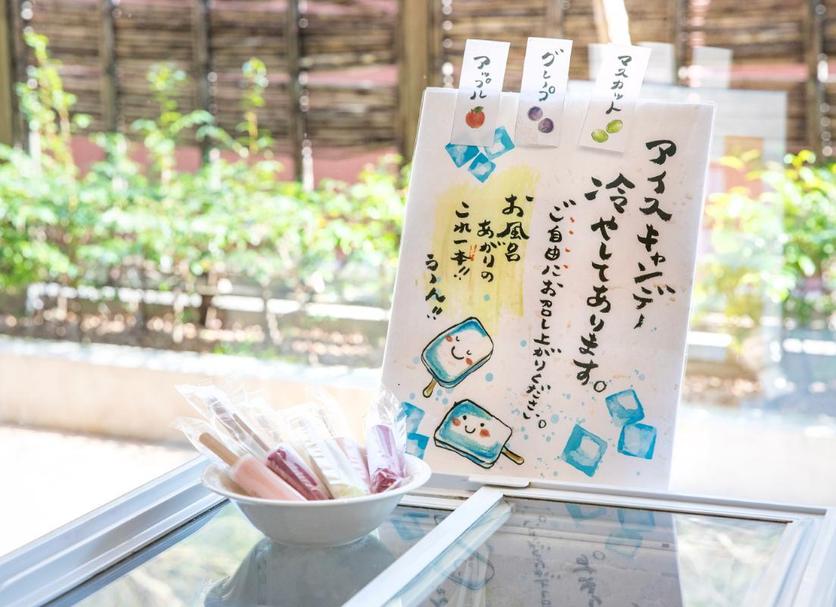 マスカット
グレープ
アップル
アイスキャンデー
冷やしてあります。
ご自由にお召し上がりください。
お風呂
あがりの
これ一本!!
う〜ん!!